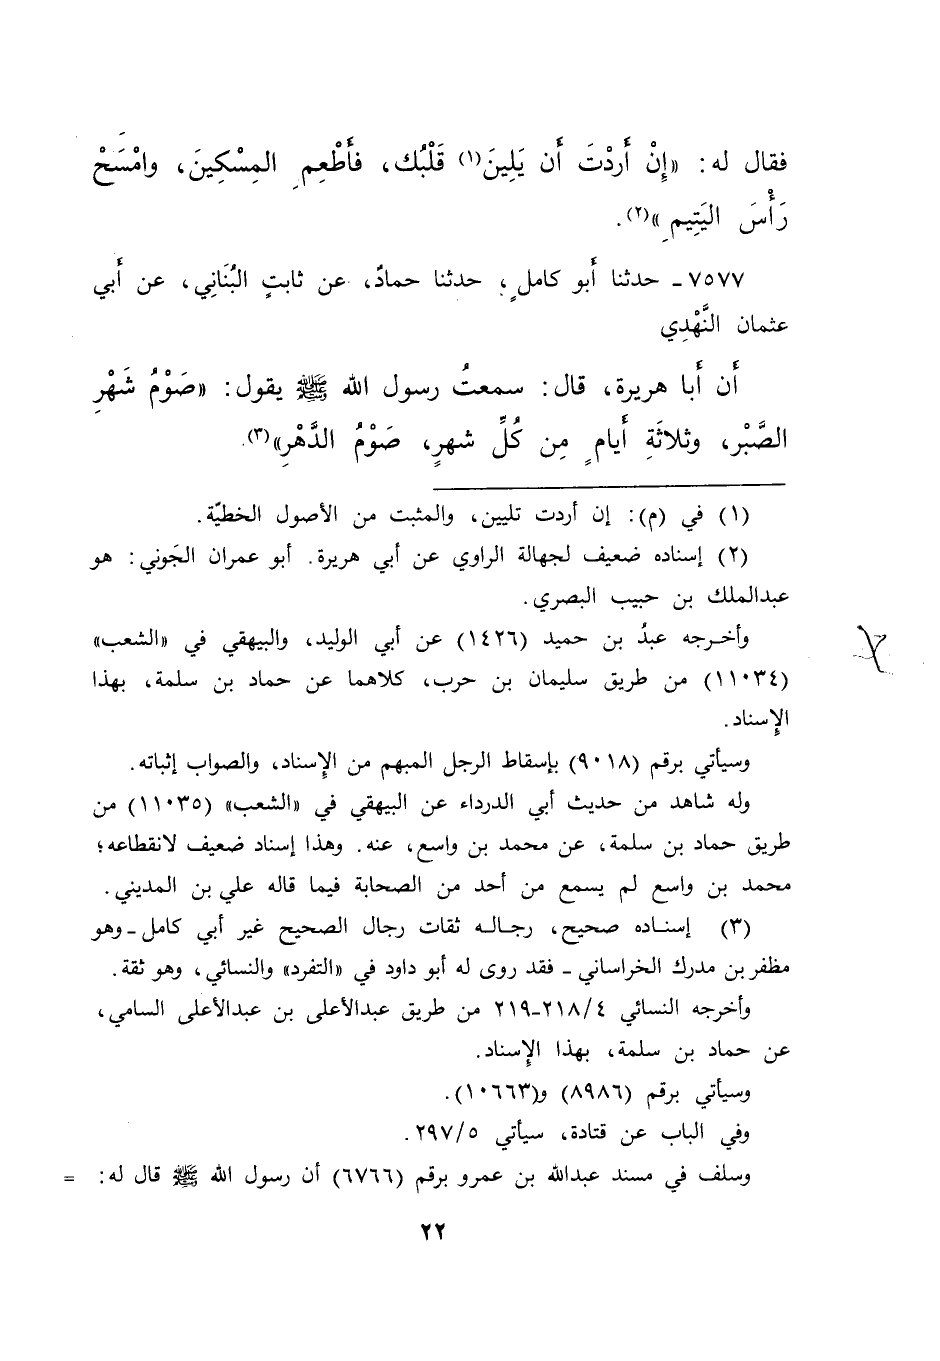 فقال له: «إِنْ أَردْتَ أَن يَلِينَ(١) قَلْبُك، فأَطْعِمِ المِسْكِينَ، وامْسَحْ
رَأْسَ اليَتِيمِ»(٢).
٧٥٧٧ـ حدثنا أَبو كامل، حدثنا حمادٌ، عن ثابتٍ البُنَانِي، عن أَبي
عثمان النَّهْدِي
أَن أَبا هريرة، قال: سمعتُ رسول الله ﷺ يقول: «صَوْمُ شَهْرِ
الصَّبْر، وثلاثَةِ أَيامٍ مِن كُلِّ شهرٍ، صَوْمُ الدَّهْرِ»(٣).
(١) في (م): إن أردت تليين، والمثبت من الأصول الخطيّة.
(٢) إسناده ضعيف لجهالة الراوي عن أبي هريرة. أبو عمران الجَوني: هو
عبدالملك بن حبيب البصري.
وأخرجه عبدُ بن حميد (١٤٢٦) عن أبي الوليد، والبيهقي في «الشعب»
(١١٠٣٤) من طريق سليمان بن حرب، كلاهما عن حماد بن سلمة، بهذا
الإسناد.
وسيأتي برقم (٩٠١٨) بإسقاط الرجل المبهم من الإسناد، والصواب إثباته.
وله شاهد من حديث أبي الدرداء عن البيهقي في «الشعب» (١١٠٣٥) من
طريق حماد بن سلمة، عن محمد بن واسع، عنه. وهذا إسناد ضعيف لانقطاعه؛
محمد بن واسع لم يسمع من أحد من الصحابة فيما قاله علي بن المديني.
(٣) إسناده صحيح، رجاله ثقات رجال الصحيح غير أبي كامل ـ وهو
مظفر بن مدرك الخراساني ـ فقد روى له أبو داود في «التفرد» والنسائي، وهو ثقة.
وأخرجه النسائي ٢١٨/٤ـ٢١٩ من طريق عبدالأعلى بن عبدالأعلى السامي،
عن حماد بن سلمة، بهذا الإسناد.
وسيأتي برقم (٨٩٨٦) و(١٠٦٦٣).
وفي الباب عن قتادة، سيأتي ٢٩٧/٥.
وسلف في مسند عبدالله بن عمرو برقم (٦٧٦٦) أن رسول الله ﷺ قال له: =
٢٢